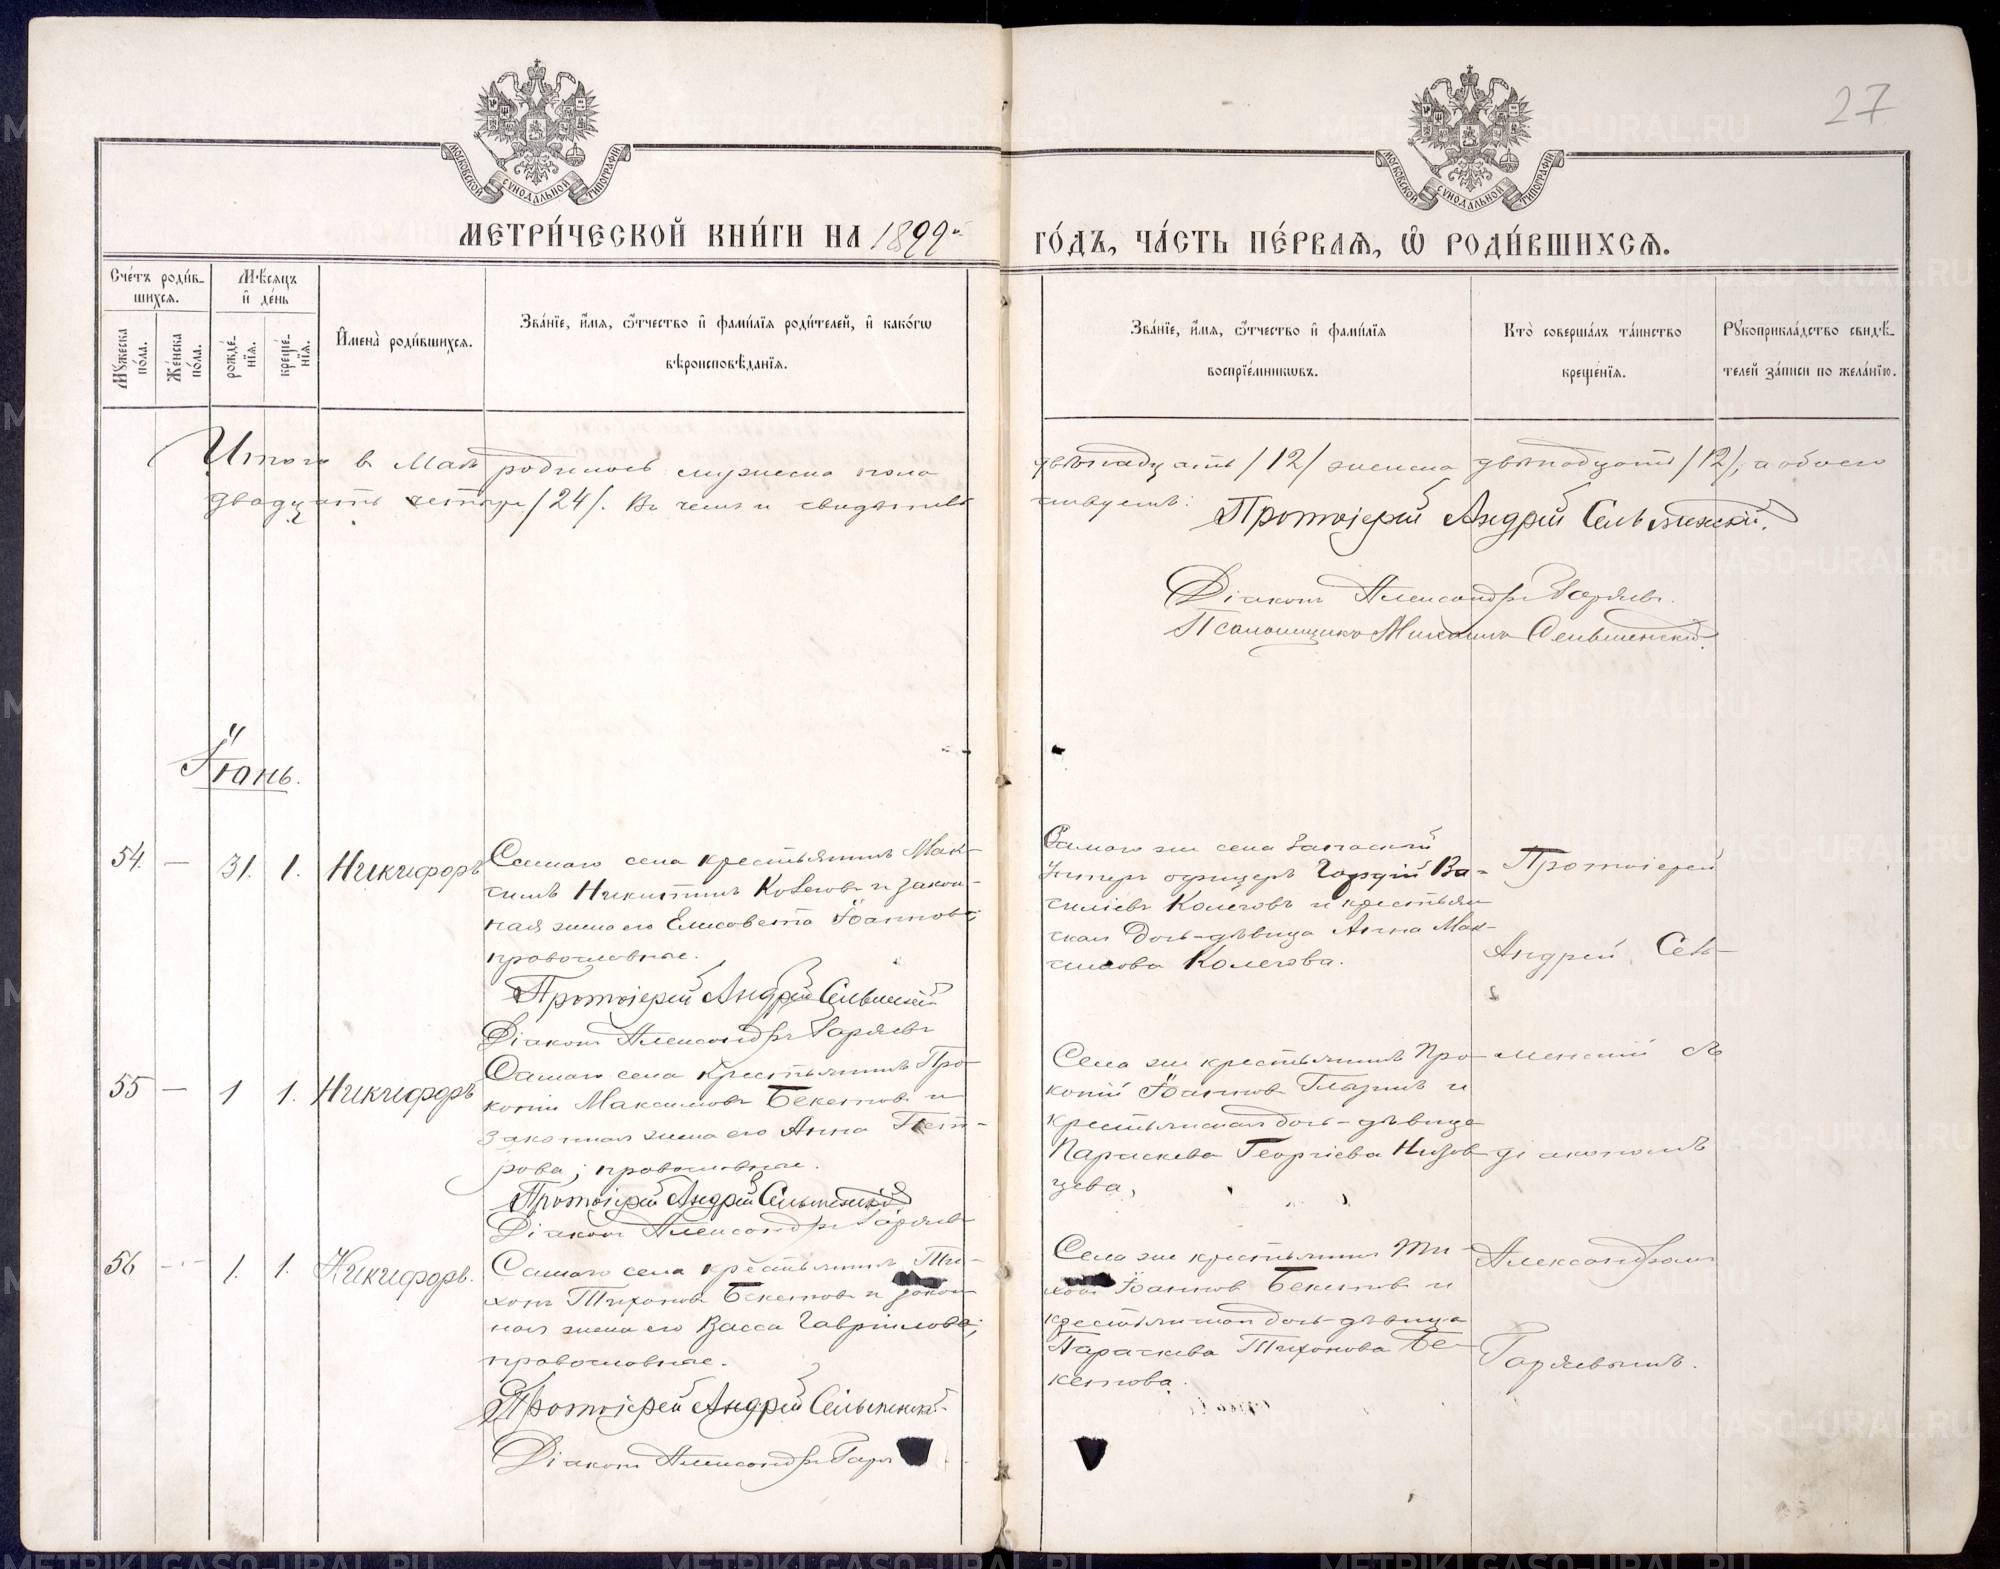 27
МОСКОВСКОЙ СѴНОДАЛЬНОЙ ТИПОГРАФІИ
МОСКОВСКОЙ СѴНОДАЛЬНОЙ ТИПОГРАФІИ
МЕТРИ́ЧЕСКОЙ КНИ́ГИ НА 1899й
ГО́ДЪ, ЧА́СТЬ ПЕ́РВАѦ, Ѡ҆ РОДИ́ВШИХСѦ.
Сче́тъ роди́в-
шихсѧ.
Мꙋ́жеска по́ла.
Же́нска по́ла.
Мѣ́сѧцъ
и҆ де́нь
рожде́-нїѧ.
креще́-нїѧ.
И҆мена̀ роди́вшихсѧ.
Зва́нїе, и҆́мѧ, ѻ҆́тчество и҆ фами́лїѧ роди́телей, и҆ како́гѡ
вѣроисповѣ́данїѧ.
Зва́нїе, и҆́мѧ, ѻ҆́тчество и҆ фами́лїѧ
воспрїе́мникѡвъ.
Кто̀ соверша́лъ та́инство
креще́нїѧ.
Рꙋкоприкла́дство свидѣ́-
телей за́писи по жела́нїю.
Итого въ Маѣ родилось мужеска пола
двѣнадцать /12/ женска двѣнадцать /12/, а обоего
двадцать четыре /24/. Въ чемъ и свидѣтель
ствуемъ:
Протоіерей Андрей Сельменскій.
Діаконъ Александръ Гаряевъ.
Псаломщикъ Михаилъ Сельменскій.
Іюнь.
54. — 31. 1. Никифоръ
Самаго села крестьянинъ Мак-
симъ Никитинъ Колеговъ и закон-
ная жена его Елисавета Іоаннова;
православные.
Протоіерей Андрей Сельменскій
Діаконъ Александръ Гаряевъ
Самаго же села запасный
Унтеръ офицеръ Гордій Ва-
силіевъ Колеговъ и крестьян
ская дочь-дѣвица Анна Мак-
симова Колегова.
Протоіерей
Андрей Сель-
55 — 1 1. Никифоръ
Самаго села крестьянинъ Про-
копій Максимовъ Бекетовъ и
законная жена его Анна Пет-
рова; православные.
Протоіерей Андрей Сельменскій
Діаконъ Александръ Гаряевъ
Села же крестьянинъ Про-
копій Іоанновъ Глазинъ и
крестьянская дочь-дѣвица
Параскева Георгіева Низов
цева,
менскій съ
діакономъ
56 — 1. 1. Никифоръ.
Самаго села крестьянинъ Ти-
хонъ Тихоновъ Бекетовъ и закон
ная жена его Васса Гавріилова;
православные.
Протоіерей Андрей Сельменскій.
Діаконъ Александръ Гаря
Села же крестьянинъ Ти-
хонъ Іоанновъ Бекетовъ и
крестьянская дочь-дѣвица
Параскева Тихонова Бе-
кетова.
Александромъ
Гаряевымъ.
METRIKI.GASO-URAL.RU